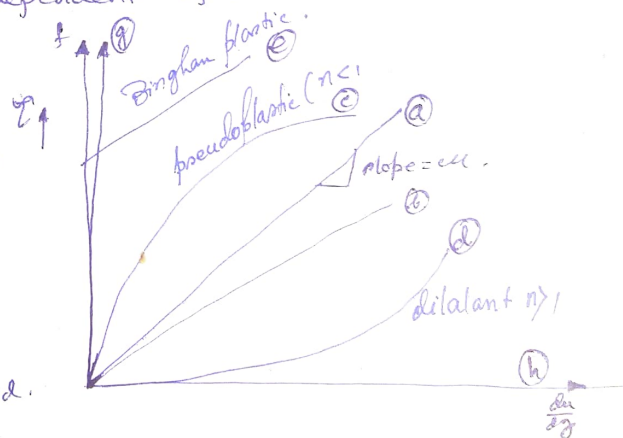 f
g
Binghan plastic.
e
τ
pseudoplastic (n<1
c
a
slope = μ.
b
d
dilalant n>1
h
d.
du
dy